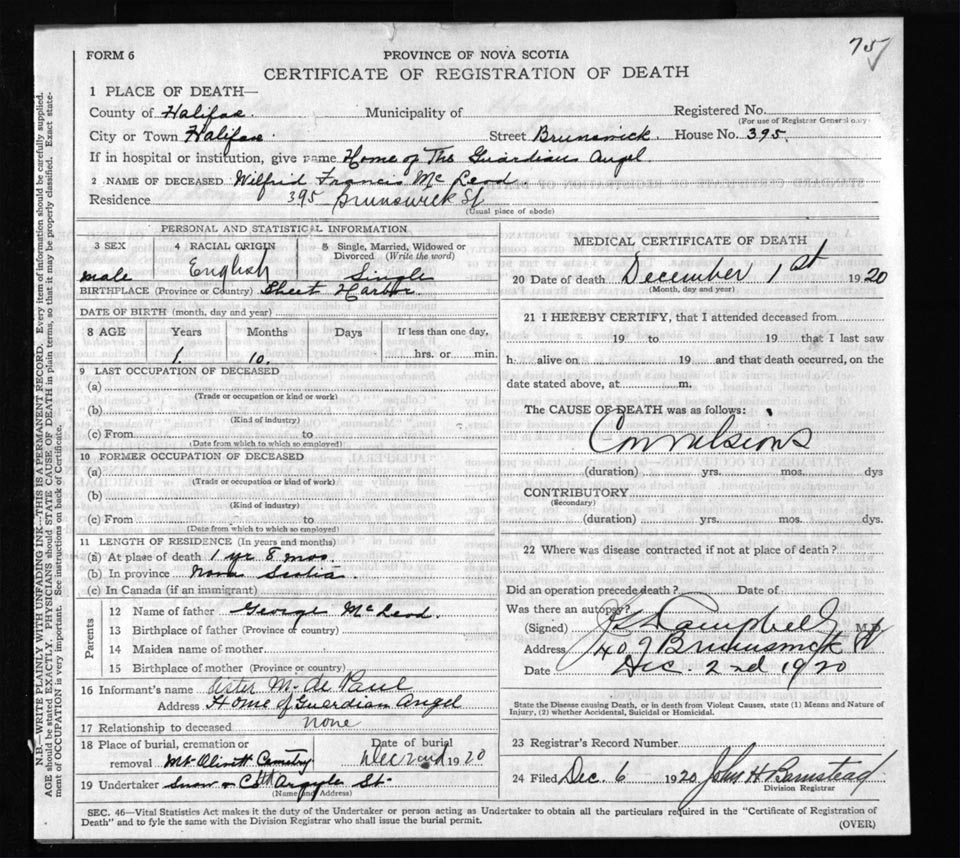 75
FORM 6
PROVINCE OF NOVA SCOTIA
CERTIFICATE OF REGISTRATION OF DEATH
1 PLACE OF DEATH—
County of Halifax Municipality of Registered No.
(For use of Registrar General only)
City or Town Halifax Street Brunswick House No. 395
If in hospital or institution, give name Home of The Guardian Angel
2 NAME OF DECEASED Wilfrid Francis McLeod
Residence 395 Brunswick St
(Usual place of abode)
PERSONAL AND STATISTICAL INFORMATION
3 SEX 4 RACIAL ORIGIN 5 Single, Married, Widowed or Divorced (Write the word)
male English Single
BIRTHPLACE (Province or Country) Sheet Harbor
DATE OF BIRTH (month, day and year)
8 AGE Years Months Days If less than one day,
1. 10. hrs. or min.
9 LAST OCCUPATION OF DECEASED
(a)
(Trade or occupation or kind or work)
(b)
(Kind of industry)
(c) From to
(Date from which to which so employed)
10 FORMER OCCUPATION OF DECEASED
(a)
(Trade or occupation or kind of work)
(b)
(Kind of industry)
(c) From to
(Date from which to which so employed)
11 LENGTH OF RESIDENCE (In years and months)
(a) At place of death 1 yr 8 mos.
(b) In province Nova Scotia
(c) In Canada (if an immigrant)
Parents
12 Name of father George McLeod
13 Birthplace of father (Province or country)
14 Maiden name of mother
15 Birthplace of mother (Province or country)
16 Informant's name Sister M. de Paul
Address Home of Guardian Angel
17 Relationship to deceased none
18 Place of burial, cremation or removal Mt Olivett Cemetry Date of burial Dec 2nd 1920
19 Undertaker Snow & Co Argyle St
(Name and Address)
MEDICAL CERTIFICATE OF DEATH
20 Date of death December 1st 1920
(Month, day and year)
21 I HEREBY CERTIFY, that I attended deceased from
19 to 19 that I last saw
h alive on 19 and that death occurred, on the
date stated above, at m.
The CAUSE OF DEATH was as follows:
Convulsions
(duration) yrs. mos. dys
CONTRIBUTORY
(Secondary)
(duration) yrs. mos. dys.
22 Where was disease contracted if not at place of death?
Did an operation precede death? Date of
Was there an autopsy?
(Signed) Campbell M.D.
Address 407 Brunswick St
Date Dec. 2nd 1920
State the Disease causing Death, or in death from Violent Causes, state (1) Means and Nature of
Injury, (2) whether Accidental, Suicidal or Homicidal.
23 Registrar's Record Number
24 Filed Dec. 6 1920 John H Barnstead
Division Registrar
SEC. 46—Vital Statistics Act makes it the duty of the Undertaker or person acting as Undertaker to obtain all the particulars required in the "Certificate of Registration of
Death" and to fyle the same with the Division Registrar who shall issue the burial permit.
(OVER)
N.B.—WRITE PLAINLY WITH UNFADING INK—THIS IS A PERMANENT RECORD. Every item of information should be carefully supplied.
AGE should be stated EXACTLY. PHYSICIANS should STATE CAUSE OF DEATH in plain terms, so that it may be properly classified. Exact state-
ment of OCCUPATION is very important. See instructions on back of Certificate.